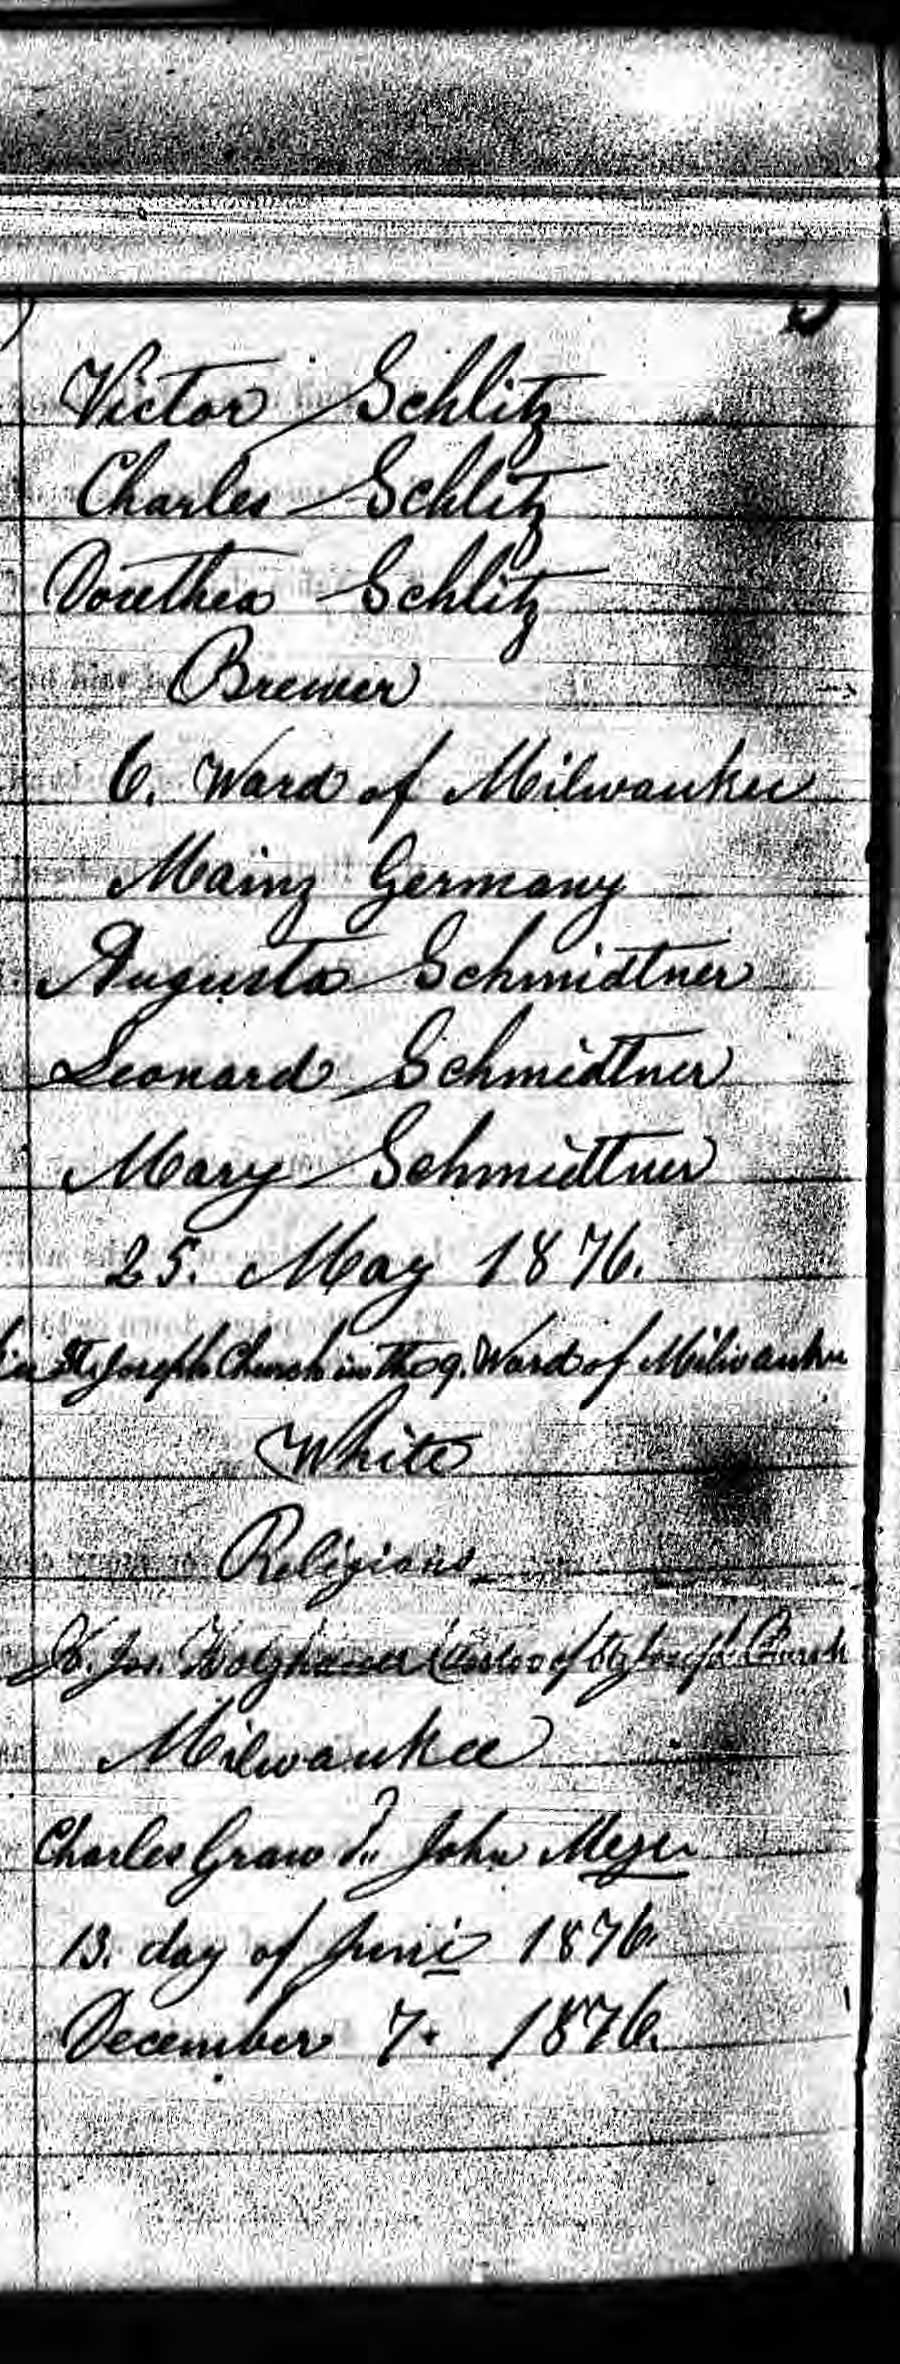 Victor Schlitz
Charles Schlitz
Dorethea Schlitz
Brewer
6. Ward of Milwaukee
Mainz Germany
Augusta Schmidtner
Leonard Schmidtner
Mary Schmidtner
25. May 1876.
in St. Joseph Church in the 9. Ward of Milwaukee
White
Religious
Jos. Holzhauer of St. Joseph Church
Milwaukee
Charles Graw John Meyer
13. day of Juni 1876.
December 7. 1876.